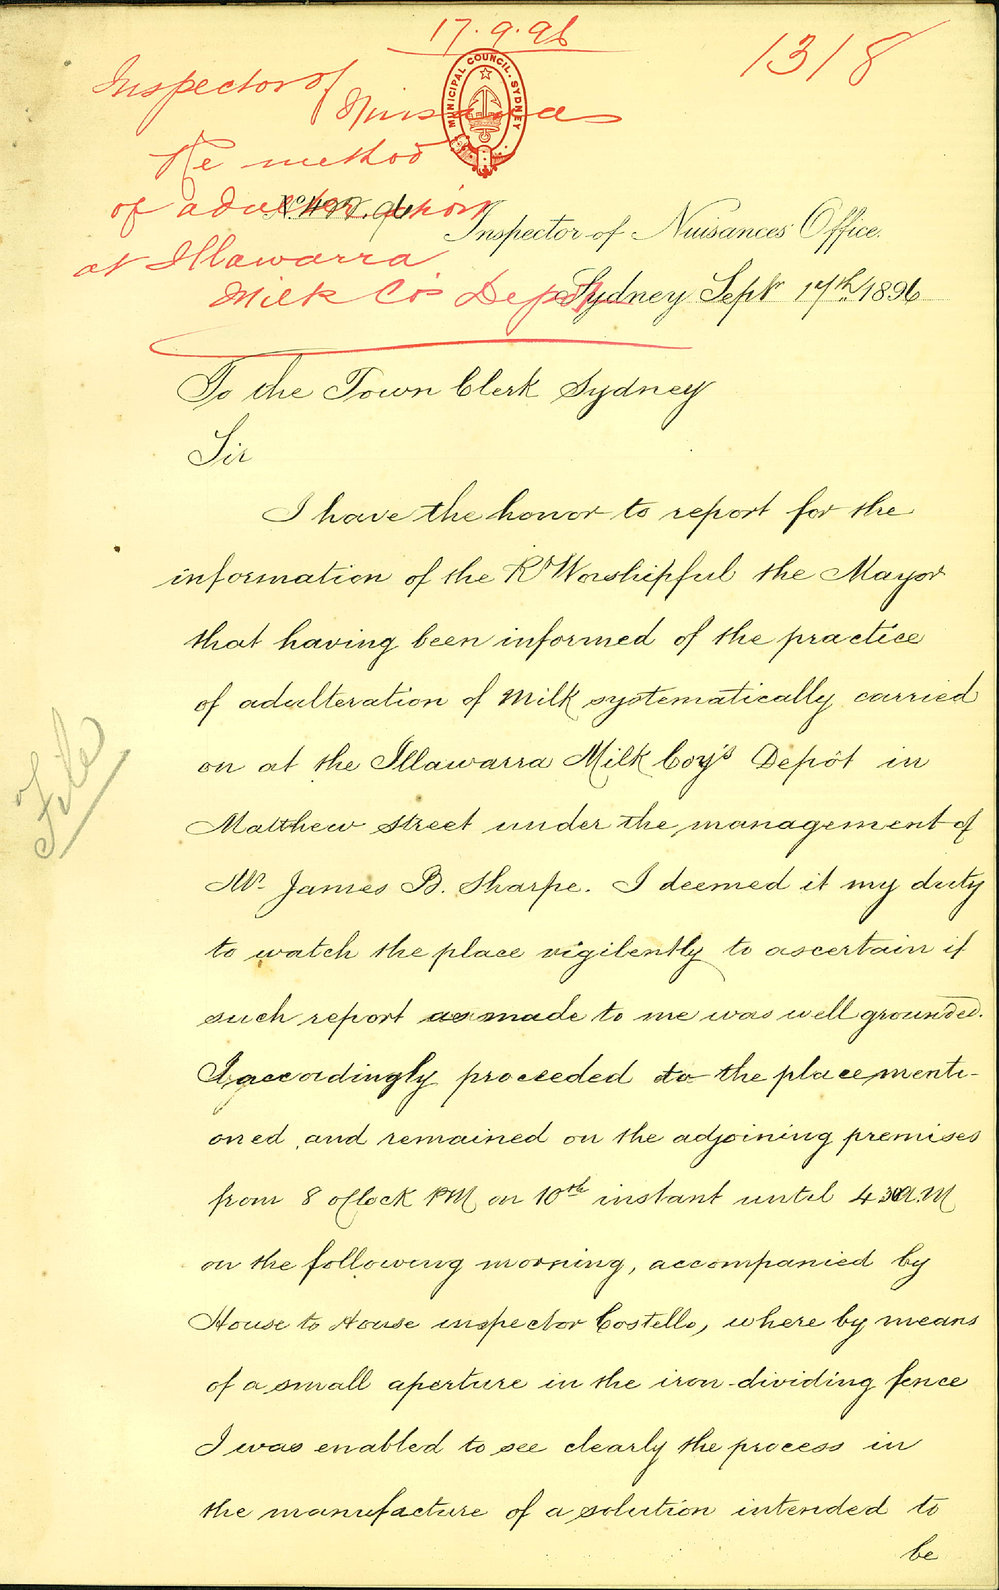 17.9.96
1318
Inspector of
Nuisances
Re method
of adulteration
at Illawarra
Milk Co's Depot
MUNICIPAL COUNCIL. SYDNEY
Inspector of Nuisances Office.
Sydney Septr 17th 1896
To the Town Clerk Sydney
Sir
I have the honor to report for the
information of the Rt Worshipful the Mayor
that having been informed of the practice
of adulteration of Milk systematically carried
on at the Illawarra Milk Coy's Depôt in
Matthew Street under the management of
Mr. James B. Sharpe. I deemed it my duty
to watch the place vigilently to ascertain if
such report as made to me was well grounded.
I accordingly proceeded to the place menti-
oned and remained on the adjoining premises
from 8 oClock PM on 10th instant until 4 30 A.M
on the following morning, accompanied by
House to House inspector Costello, where by means
of a small aperture in the iron dividing fence
I was enabled to see clearly the process in
the manufacture of a solution intended to
be
File